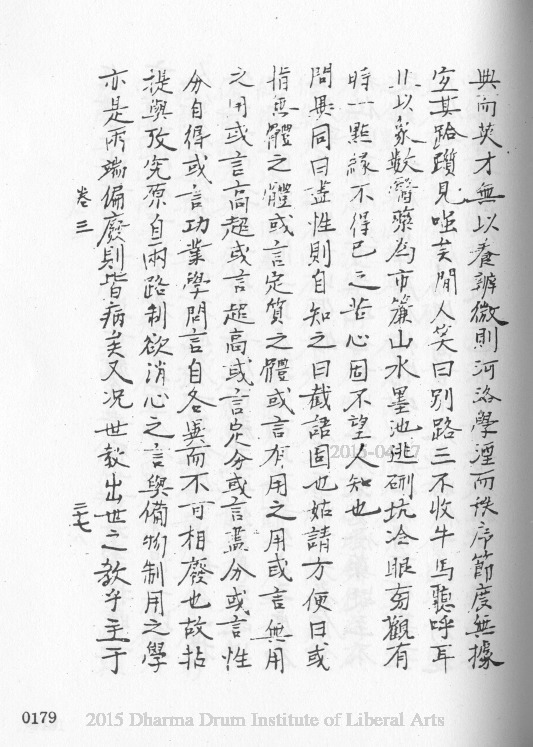 與向英才無以養辨微則河洛學湮而秩序節度無據
宜其跲躓見嗤矣閒人笑曰別路三不收牛馬聽呼耳
且以象數醫藥為市簾山水墨池逃硎坑冷眼旁觀有
時一點緣不得已之苦心固不望人知也
問畢同曰盡性則自知之曰截語固也姑請方便曰或
指無體之體或言定質之體或言有用之用或言無用
之用或言高超或言超高或言定分或言盡分或言性
分自得或言功業學問言自各異而不可相廢也故拈
提與攷究原自兩路制欲消心之言與備物制用之學
亦是兩端偏廢則皆病矣又況世教出世之教乎主于
卷三
三七
2015-04-17
0179
2015 Dharma Drum Institute of Liberal Arts